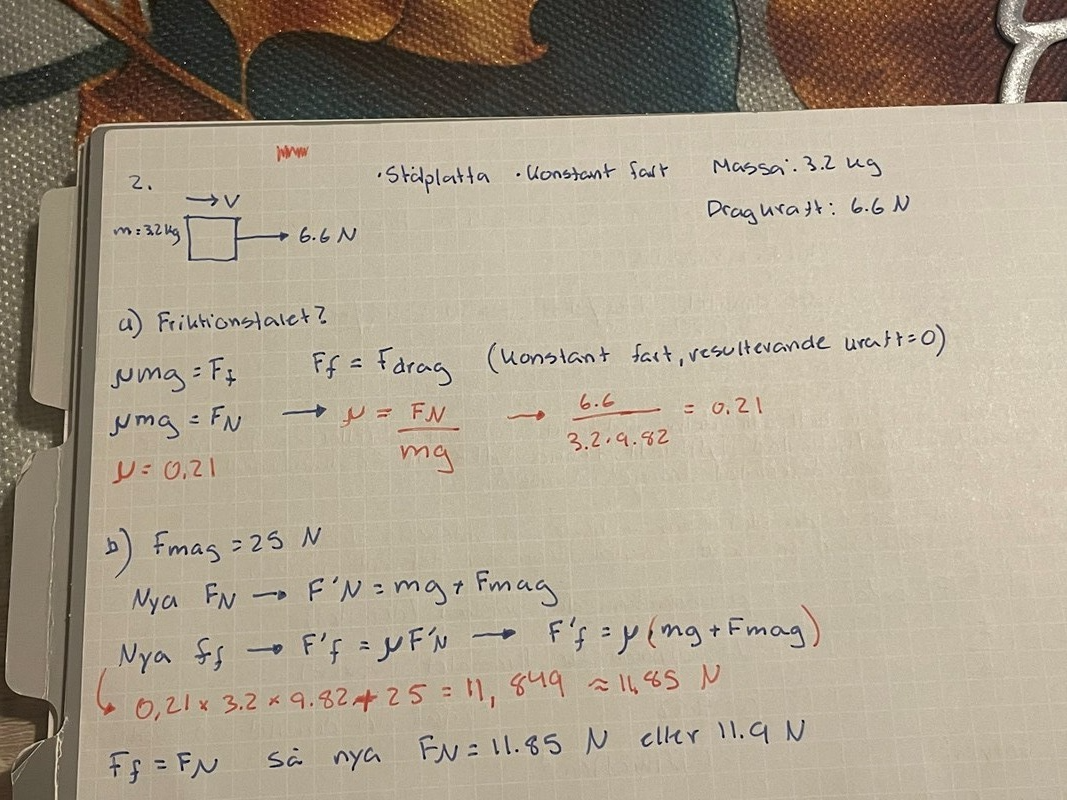 2. ·Stålplatta ·Konstant fart Massa: 3.2 kg
→ V Dragkraft: 6.6 N
m=3.2kg → 6.6 N
a) Friktionstalet?
μmg = Ff Ff = Fdrag (Konstant fart, resulterande kraft=0)
μmg = FN → μ = FN/mg → 6.6/3.2·9.82 = 0.21
μ = 0,21
b) Fmag = 25 N
Nya FN → F'N = mg + Fmag
Nya Ff → F'f = μF'N → F'f = μ(mg + Fmag)
0,21 x 3.2 x 9.82 + 25 = 11,849 ≈ 11,85 N
Ff = FN så nya FN = 11.85 N eller 11.9 N